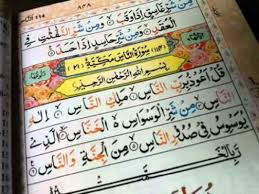 شَرِّ غَاسِقٍ إِذَا وَقَبَ ۙ وَمِنْ شَرِّ النَّفّٰثٰتِ فِي
الْعُقَدِ ۙ وَمِنْ شَرِّ حَاسِدٍ إِذَا حَسَدَ
سُوْرَةُ النَّاسِ مَكِّيَّةٌ (٢١)
بِسْمِ اللهِ الرَّحْمٰنِ الرَّحِيْمِ
قُلْ أَعُوْذُ بِرَبِّ النَّاسِ ۙ مَلِكِ النَّاسِ ۙ إِلٰهِ
النَّاسِ ۙ مِنْ شَرِّ الْوَسْوَاسِ ۙ الْخَنَّاسِ ۙ الَّذِيْ
يُوَسْوِسُ فِيْ صُدُوْرِ النَّاسِ ۙ مِنَ الْجِنَّةِ وَالنَّاسِ